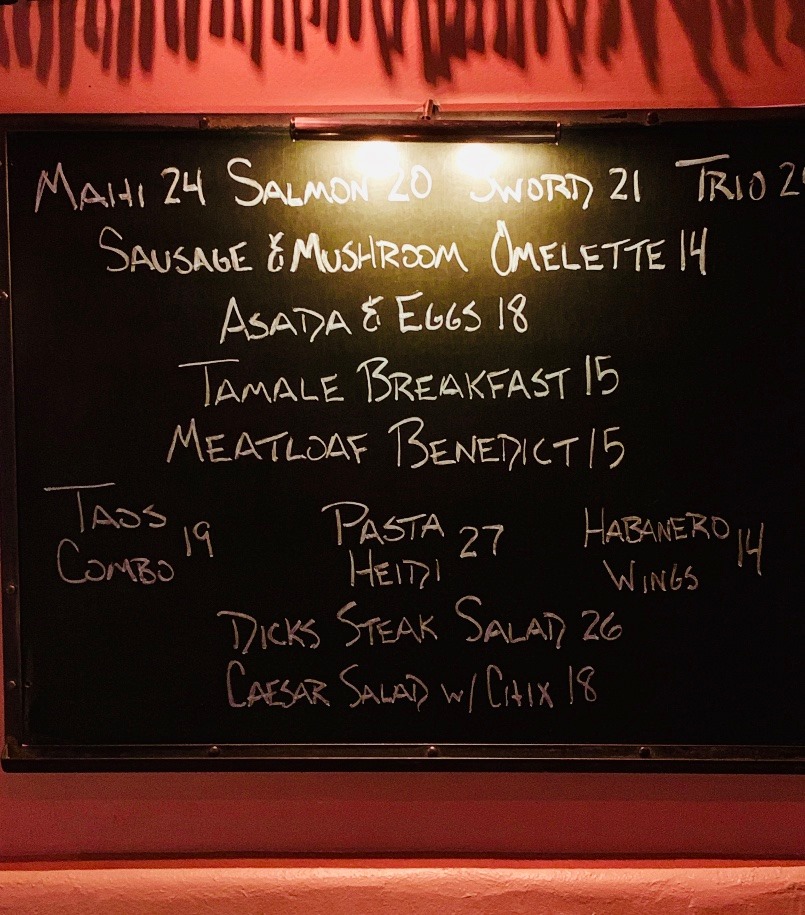 MAHI 24 SALMON 20 SWORD 21 TRIO
SAUSAGE & MUSHROOM OMELETTE 14
ASADA & EGGS 18
TAMALE BREAKFAST 15
MEATLOAF BENEDICT 15
TAOS COMBO 19
PASTA HEIDI 27
HABANERO WINGS 14
DICKS STEAK SALAD 26
CAESAR SALAD W/ CHIX 18